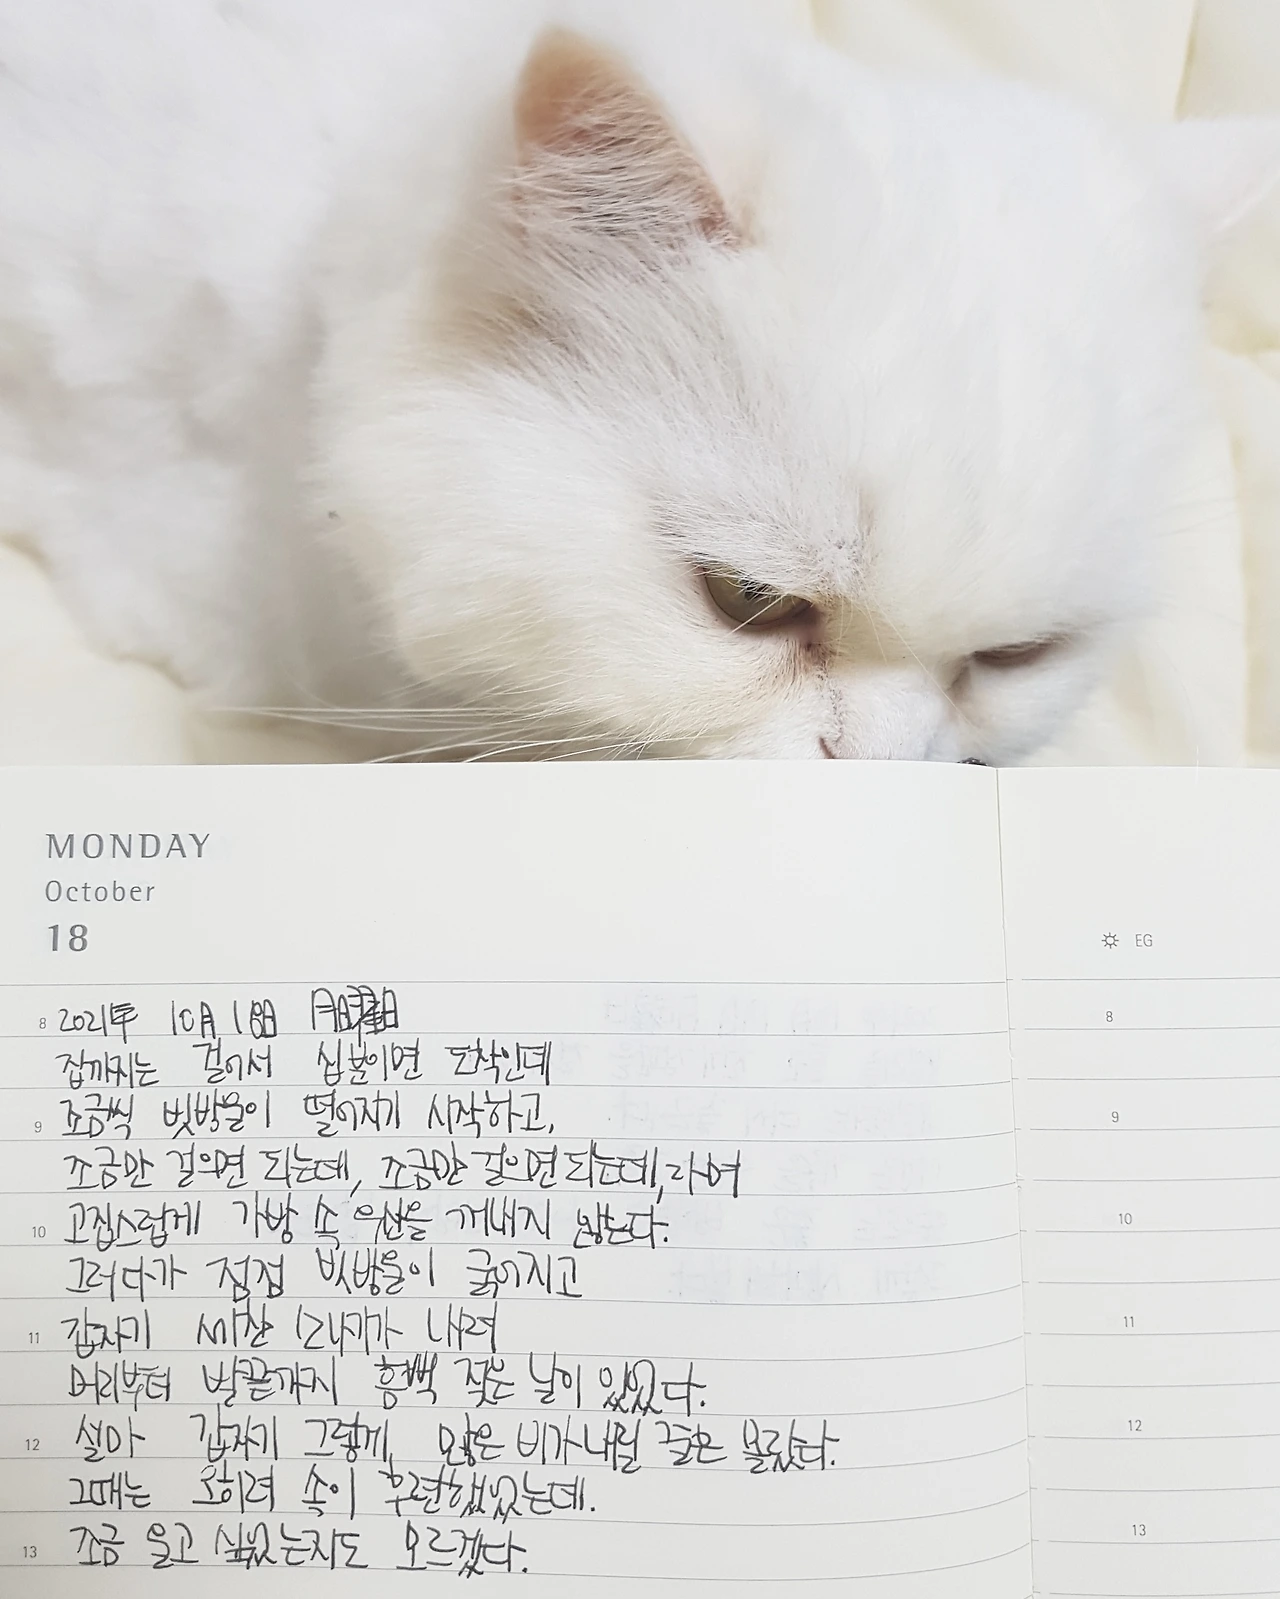 MONDAY
October
18
EG
8 2021年 10月 18日 月曜日
집까지는 걸어서 십분이면 도착인데
9 조금씩 빗방울이 떨어지기 시작하고,
조금만 걸으면 되는데, 조금만 걸으면 되는데, 라며
10 고집스럽게 가방 속 우산을 꺼내지 않는다.
그러다가 점점 빗방울이 굵어지고
11 갑자기 세찬 소나기가 내려
머리부터 발끝까지 흠뻑 젖은 날이 있었다.
12 설마 갑자기 그렇게, 많은 비가 내릴 줄은 몰랐다.
그때는 오히려 속이 후련했었는데.
13 조금 울고 싶었는지도 모르겠다.
8
9
10
11
12
13